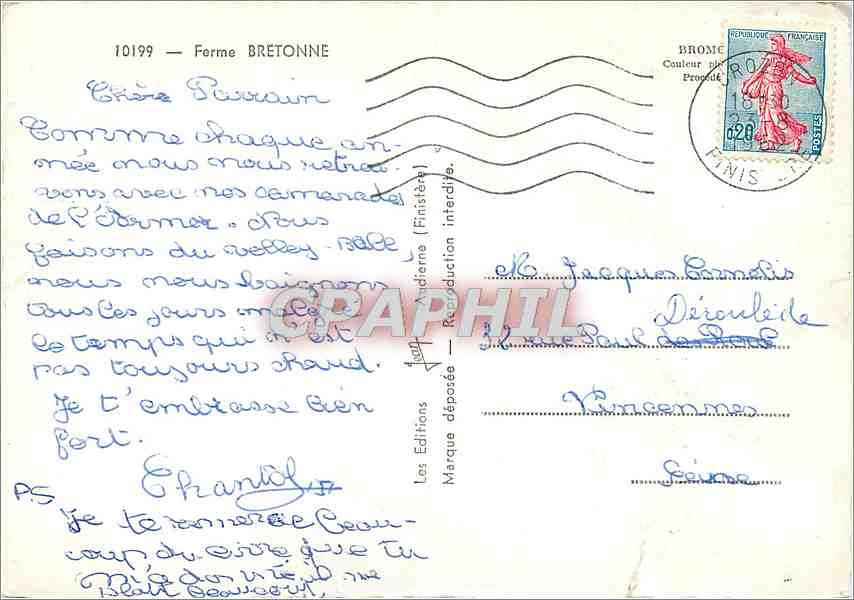 10199 — Ferme BRETONNE
Chère Parrain
Comme chaque an-
née nous nous retrou-
vons avec nos camarades
de l'Armor. Nous
faisons du volley-Ball,
nous nous baignons
tous les jours malgré
le temps qui n'est
pas toujours chaud.
Je t'embrasse bien
fort.
Chantal
P.S
Je te remercie beau-
coup du livre que tu
m'a donné il me
plait beaucoup.
Les Editions Jean Audierne (Finistère)
Marque déposée — Reproduction interdite.
BROMO
Couleur
Procédé
REPUBLIQUE FRANÇAISE
0,20
POSTES
18 H30
FINIS
M. Jacques Cornolis
Déroulède
32 rue Paul
Vincennes
Seine
CRAPHIL